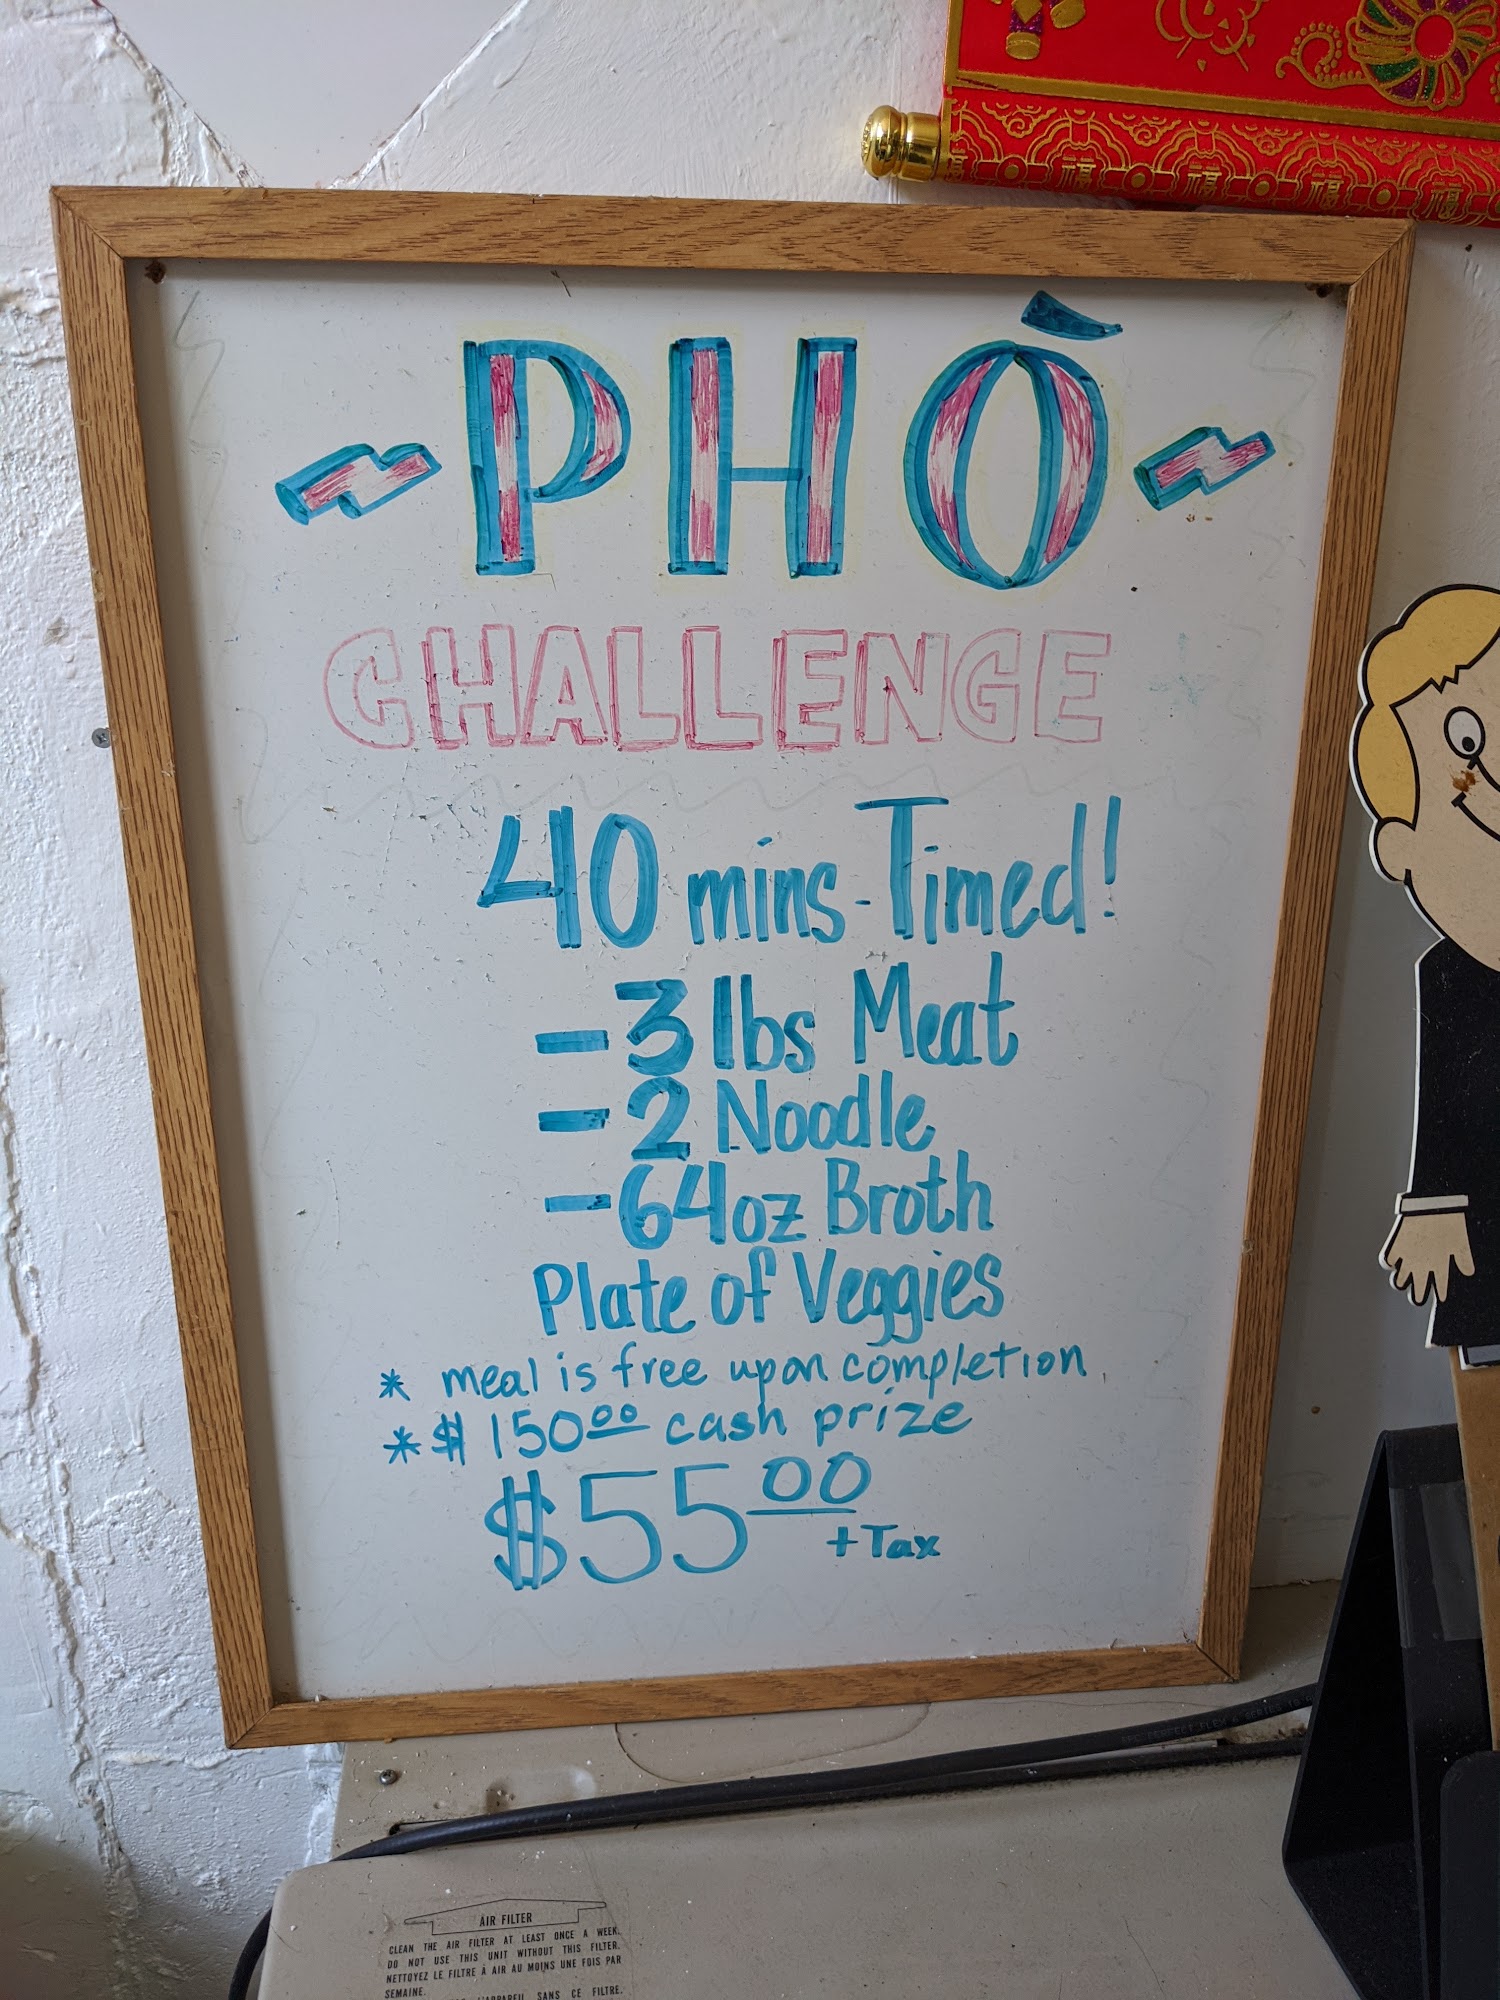 福 福 福 福
~ PHỞ ~
CHALLENGE
40 mins - Timed!
- 3 lbs Meat
- 2 Noodle
- 64oz Broth
Plate of Veggies
* meal is free upon completion
* $150.00 cash prize
$55.00
+ Tax
AIR FILTER
CLEAN THE AIR FILTER AT LEAST ONCE A WEEK.
DO NOT USE THIS UNIT WITHOUT THIS FILTER.
NETTOYEZ LE FILTRE À AIR AU MOINS UNE FOIS PAR
SEMAINE.
L'APPAREIL SANS CE FILTRE.